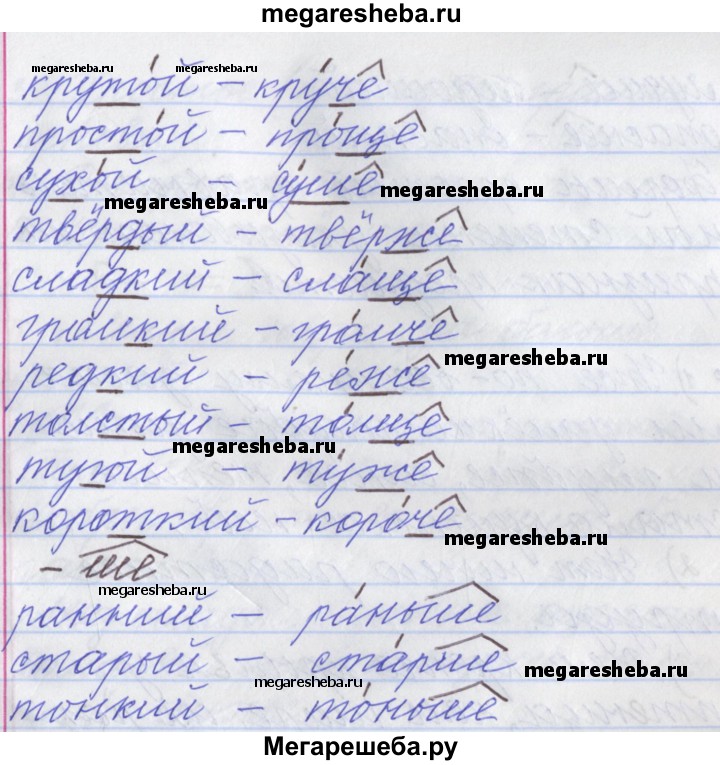 megaresheba.ru
megaresheba.ru megaresheba.ru
крутой – круче
простой – проще
сухой – суше
megaresheba.ru
megaresheba.ru
твёрдый – твёрже
сладкий – слаще
громкий – громче
megaresheba.ru
редкий – реже
толстый – толще
megaresheba.ru
тугой – туже
короткий – короче
megaresheba.ru
– ше
megaresheba.ru
ранний – раньше
старый – старше
megaresheba.ru
megaresheba.ru
тонкий – тоньше
Мегарешеба.ру